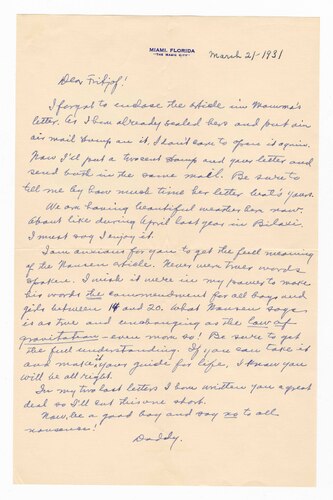 MIAMI, FLORIDA
"THE MAGIC CITY"
March 21-1931
Dear Fritjof!
I forgot to enclose the article in Mamma's
letter. As I have already sealed hers and put an
air mail stamp on it, I don't care to open it again.
Now I'll put a two cent stamp and your letter and
send both in the same mail. Be sure to
tell me by how much time her letter beat's yours.
We are having beautiful weather here now.
About like during April last year in Biloxi,
I must say I enjoy it.
I am anxious for you to get the full meaning
of the Nansen article. Never were truer words
spoken. I wish it were in my power to make
his words the commandment for all boys and
girls between 14 and 20. What Nansen says
is as true and unchanging as the law of
gravitation - even more so! Be sure to get
the full understanding. If you can take it
and make it your guide for life, I know you
will be all right.
In my two last letters I have written you a great
deal so I'll cut this one short.
Now, be a good boy and say no to all
nonsense!
Daddy.